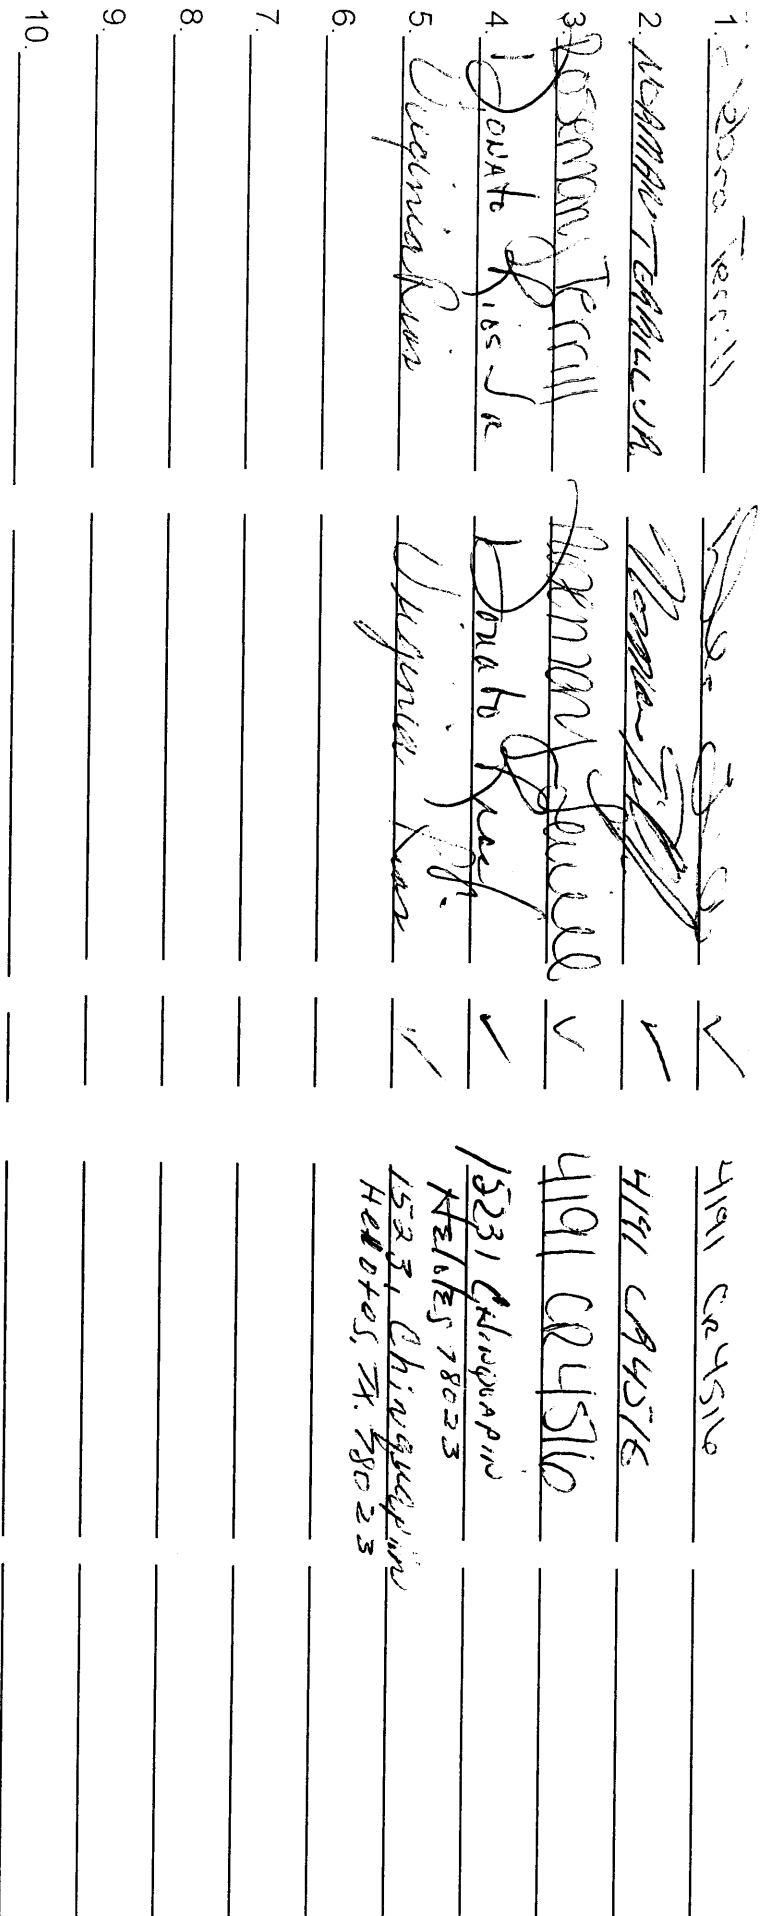 1. Terrill ✓ 4191 CR 4516
2. NORMAN TERRILL JR. Norman ✓ 4191 CR 4516
3. Rosemary Terrill Rosemary Terrill ✓ 4191 CR 4516
4. Donato Rios Jr Donato Rios Jr. ✓ 15231 CHINQUAPIN
Helotes 78023
5. Virginia Rios Virginia Rios ✓ 15231 Chinquapin
Helotes, TX. 78023
6.
7.
8.
9.
10.